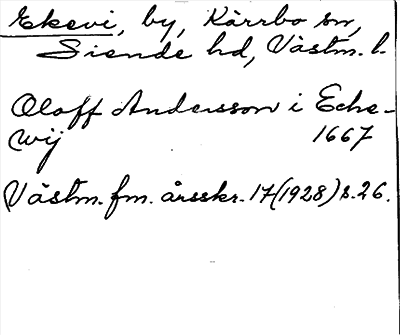 Ekevi, by, Kärrbo sn,
Siende hd, Västm. l.
Oloff Andersson i Eche-
wij 1667
Västm. fm. årsskr. 17 (1928) s. 26.